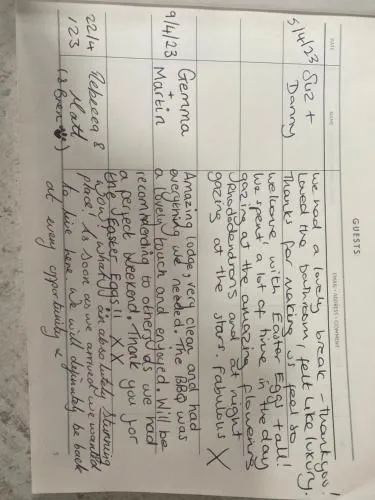 GUESTS
DATE NAME EMAIL · ADDRESS · COMMENT
5/4/23 Suz + Danny
We had a lovely break - thankyou!
Loved the bathroom, felt like luxury.
Thanks for making us feel so
welcome, with Easter Eggs + all!
We spent a lot of time in the day
gazing at the amazing flowering
rhododendrons and at night
gazing at the stars. Fabulous X
9/4/23 Gemma + Martin
Amazing lodge, very clean and had
everything we needed. The BBQ was
a lovely touch and enjoyed. Will be
recommending to others as we had
a perfect weekend. Thank you for
the Easter Eggs!! X X
22/4/23 Rebecca & Matt
Wow, what an absolutely stunning
place! As soon as we arrived we wanted
to live here. We will definitely be back
at every opportunity x